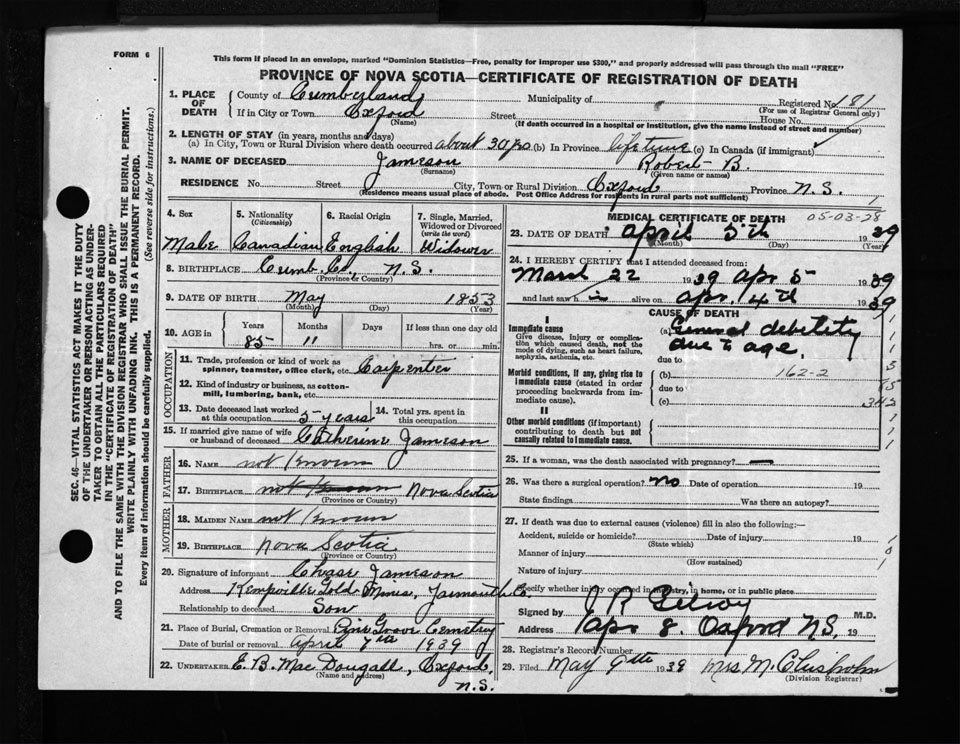 FORM 6
This form if placed in an envelope, marked "Dominion Statistics—Free, penalty for improper use $300," and properly addressed will pass through the mail "FREE"
PROVINCE OF NOVA SCOTIA—CERTIFICATE OF REGISTRATION OF DEATH
SEC. 46—VITAL STATISTICS ACT MAKES IT THE DUTY
OF THE UNDERTAKER OR PERSON ACTING AS UNDER-
TAKER TO OBTAIN ALL THE PARTICULARS REQUIRED
IN THE "CERTIFICATE OF REGISTRATION OF DEATH"
AND TO FILE THE SAME WITH THE DIVISION REGISTRAR WHO SHALL ISSUE THE BURIAL PERMIT.
WRITE PLAINLY WITH UNFADING INK. THIS IS A PERMANENT RECORD.
Every item of information should be carefully supplied. (See reverse side for instructions.)
1. PLACE OF DEATH County of Cumberland Municipality of Registered No. 181
(For use of Registrar General only)
If in City or Town Oxford Street House No.
(Name) (If death occurred in a hospital or institution, give the name instead of street and number)
2. LENGTH OF STAY (in years, months and days)
(a) In City, Town or Rural Division where death occurred about 30 yrs. (b) In Province lifetime (c) In Canada (if immigrant)
3. NAME OF DECEASED Jameson Robert B.
(Surname) (Given name or names)
RESIDENCE No. Street City, Town or Rural Division Oxford Province N.S.
(Residence means usual place of abode. Post Office Address for residents in rural parts not sufficient)
4. Sex 5. Nationality (Citizenship) 6. Racial Origin 7. Single, Married, Widowed or Divorced (write the word)
Male Canadian English Widower
8. BIRTHPLACE Cumb. Co., N.S.
(Province or Country)
9. DATE OF BIRTH May 1853
(Month) (Day) (Year)
10. AGE in Years Months Days If less than one day old
85 11 hrs. or min.
OCCUPATION
11. Trade, profession or kind of work as spinner, teamster, office clerk, etc. Carpenter
12. Kind of industry or business, as cotton-mill, lumbering, bank, etc.
13. Date deceased last worked at this occupation 5 years 14. Total yrs. spent in this occupation
15. If married give name of wife or husband of deceased Catherine Jameson
FATHER
16. NAME not known
17. BIRTHPLACE not known Nova Scotia
(Province or Country)
MOTHER
18. MAIDEN NAME not known
19. BIRTHPLACE Nova Scotia
(Province or Country)
20. Signature of informant Jameson
Address Kempville Gold Mines, Yarmouth Co.
Relationship to deceased Son
21. Place of Burial, Cremation or Removal Pine Grove Cemetery
Date of burial or removal April 7th 1939
22. UNDERTAKER E. B. MacDougall, Oxford, N.S.
(Name and address)
MEDICAL CERTIFICATE OF DEATH
05-03-28
23. DATE OF DEATH April 5th 1939
(Month) (Day) (Year)
24. I HEREBY CERTIFY that I attended deceased from:
March 22 1939 Apr 5 1939
and last saw h im alive on Apr. 4th 1939
CAUSE OF DEATH
I
Immediate cause (a) General debility
Give disease, injury or complication which caused death, not the mode of dying, such as heart failure, asphyxia, asthenia, etc.
due to age.
due to
Morbid conditions, if any, giving rise to immediate cause (stated in order proceeding backwards from immediate cause).
(b) 162-2
due to
(c)
II
Other morbid conditions (if important) contributing to death but not causally related to immediate cause.
25. If a woman, was the death associated with pregnancy? —
26. Was there a surgical operation? no Date of operation 19
State findings Was there an autopsy?
27. If death was due to external causes (violence) fill in also the following:—
Accident, suicide or homicide? Date of injury 19
(State which)
Manner of injury
(How sustained)
Nature of injury
Specify whether injury occurred in industry, in home, or in public place
Signed by J R Gilroy M.D.
Address Oxford N.S. Apr 8. 19
28. Registrar's Record Number
29. Filed May 9th 1939 Mrs M. Chisholm
(Division Registrar)